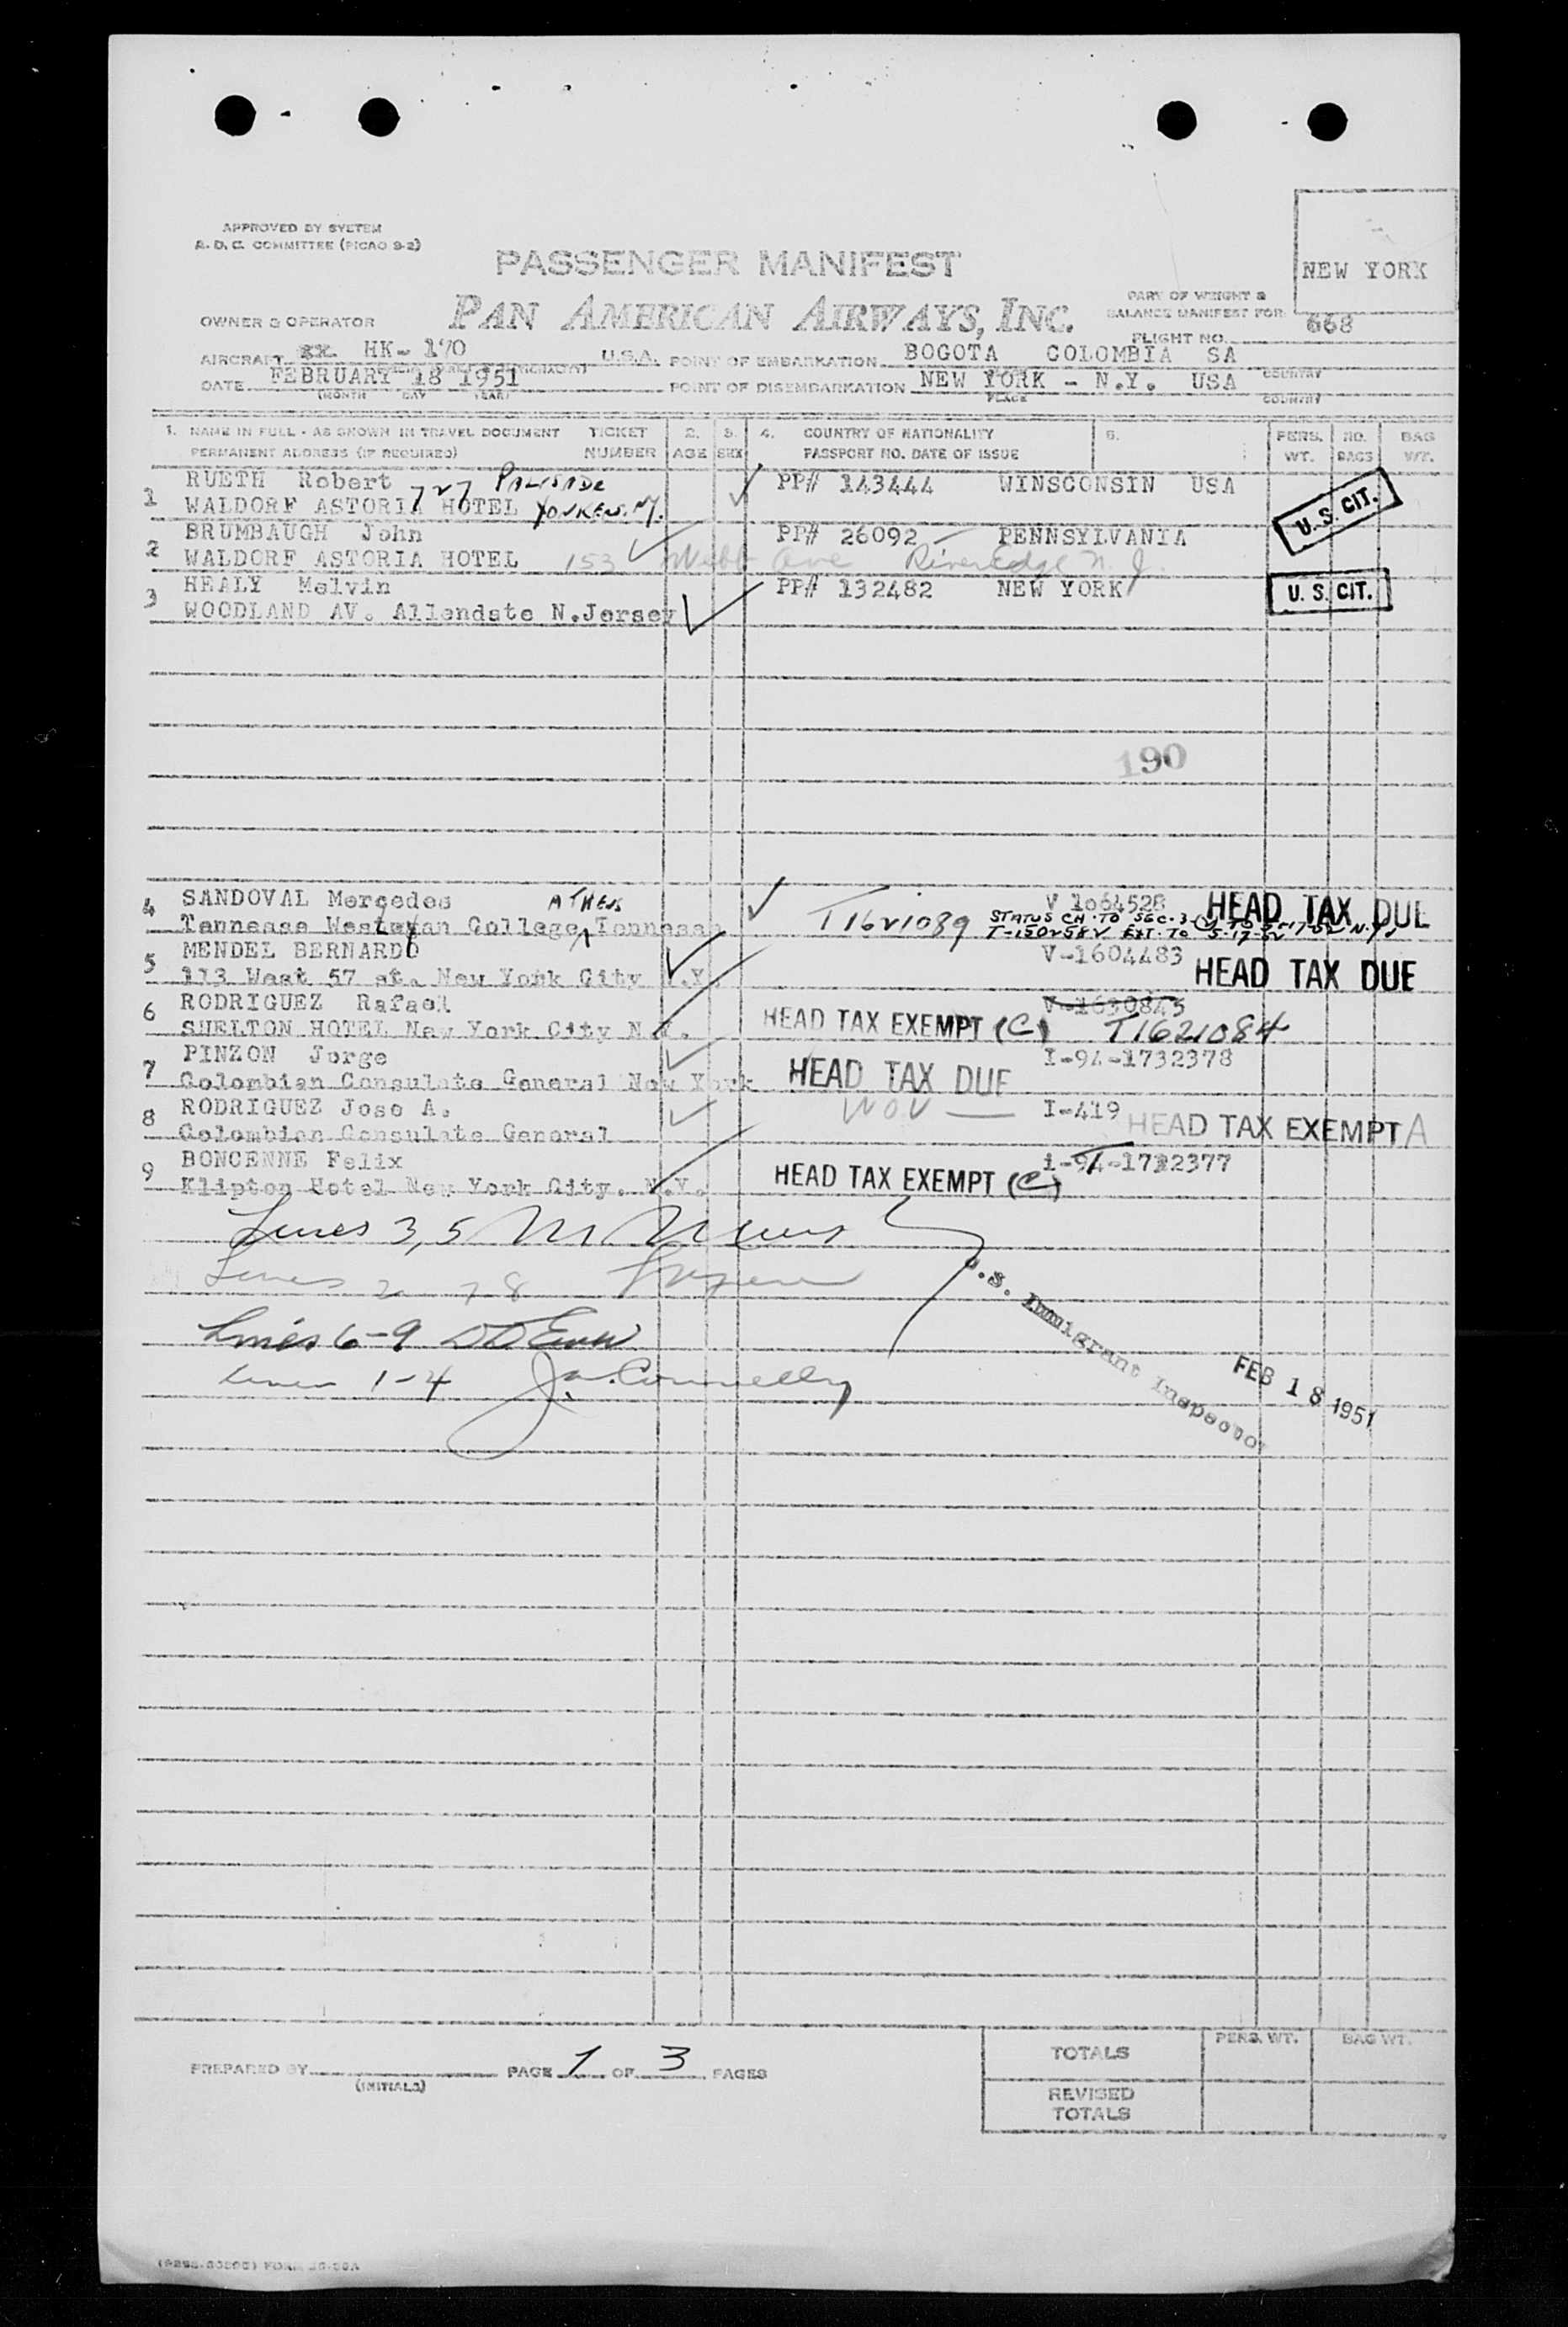 APPROVED BY SYSTEM
A. D. C. COMMITTEE (PICAO 9-2)
PASSENGER MANIFEST
NEW YORK
OWNER & OPERATOR PAN AMERICAN AIRWAYS, INC.
PART OF WEIGHT &
BALANCE MANIFEST FOR
FLIGHT NO. 668
AIRCRAFT HK- 170 U.S.A. POINT OF EMBARKATION BOGOTA COLOMBIA SA
COUNTRY
DATE FEBRUARY 18 1951 POINT OF DISEMBARKATION NEW YORK - N.Y. USA
(MONTH DAY YEAR) PLACE COUNTRY
1. NAME IN FULL - AS SHOWN IN TRAVEL DOCUMENT TICKET 2. 3. 4. COUNTRY OF NATIONALITY PERS. NO. BAG
PERMANENT ADDRESS (IF REQUIRED) NUMBER AGE SEX PASSPORT NO. DATE OF ISSUE WT. BAGS WT.
1 RUETH Robert 727 PALISADE PP# 143444 WINSCONSIN USA
WALDORF ASTORIA HOTEL YONKERS. NY. U. S. CIT.
2 BRUMBAUGH John PP# 26092 — PENNSYLVANIA
WALDORF ASTORIA HOTEL 153 Webb Ave River Edge N. J.
3 HEALY Melvin PP# 132482 NEW YORK U. S. CIT.
WOODLAND AV. Allendate N.Jersey
190
4 SANDOVAL Mercedes ATHENS V 1064528 HEAD TAX DUE
Tennesse Wesleyan College Tennesse T1621089 STATUS CH. TO SEC. 3
EXT. TO 5-17-52
5 MENDEL BERNARDO V-1604483 HEAD TAX DUE
113 West 57 st. New York City N.Y.
6 RODRIGUEZ Rafael V-1630845
SHELTON HOTEL New York City N.Y. HEAD TAX EXEMPT (C) T1621084
7 PINZON Jorge I-94-1732378
Colombian Consulate General New York HEAD TAX DUE
8 RODRIGUEZ Jose A. I-419
Colombian Consulate General HEAD TAX EXEMPT A
9 BONCENNE Felix 1732377
Klipton Hotel New York City. N.Y. HEAD TAX EXEMPT (C)
Lines 3, 5
Lines 2 7 8
Lines 6-9
Lines 1-4 Connelly
U.S. Immigrant Inspector
FEB 18 1951
PREPARED BY
(INITIALS)
PAGE 1 OF 3 PAGES
TOTALS PERS. WT. BAG WT.
REVISED
TOTALS